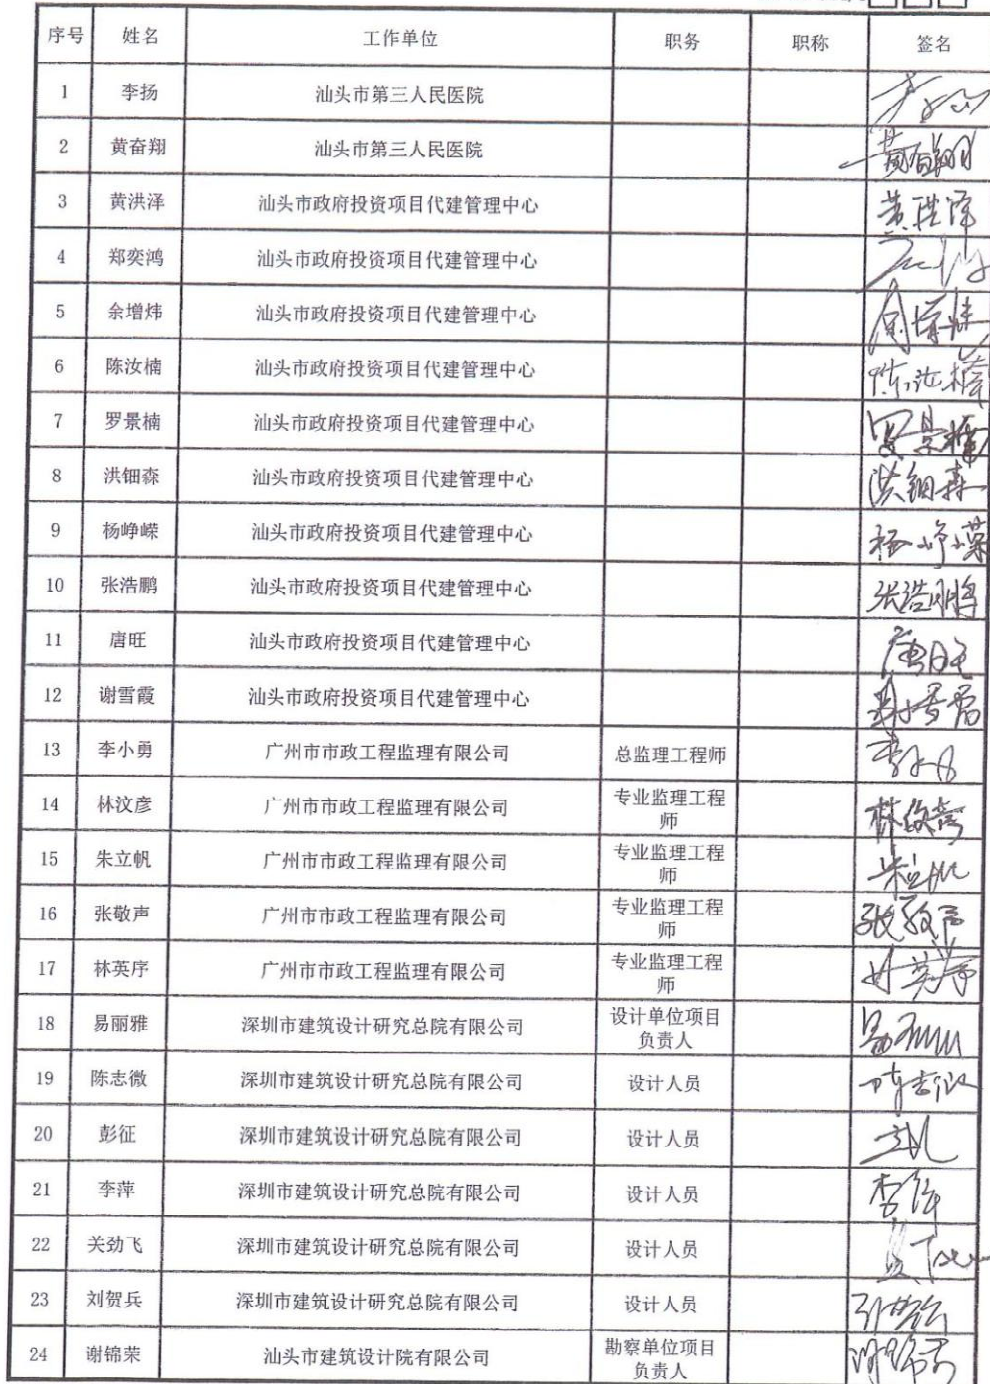 序号 姓名 工作单位 职务 职称 签名
1 李扬 汕头市第三人民医院
2 黄奋翔 汕头市第三人民医院 黄奋翔
3 黄洪泽 汕头市政府投资项目代建管理中心 黄洪泽
4 郑奕鸿 汕头市政府投资项目代建管理中心
5 余增炜 汕头市政府投资项目代建管理中心 余增炜
6 陈汝楠 汕头市政府投资项目代建管理中心 陈汝楠
7 罗景楠 汕头市政府投资项目代建管理中心 罗景楠
8 洪钿森 汕头市政府投资项目代建管理中心 洪钿森
9 杨峥嵘 汕头市政府投资项目代建管理中心 杨峥嵘
10 张浩鹏 汕头市政府投资项目代建管理中心 张浩鹏
11 唐旺 汕头市政府投资项目代建管理中心 唐旺
12 谢雪霞 汕头市政府投资项目代建管理中心
13 李小勇 广州市市政工程监理有限公司 总监理工程师
14 林汶彦 广州市市政工程监理有限公司 专业监理工程
师
15 朱立帆 广州市市政工程监理有限公司 专业监理工程
师
16 张敬声 广州市市政工程监理有限公司 专业监理工程 张敬声
师
17 林英序 广州市市政工程监理有限公司 专业监理工程 林英序
师
18 易丽雅 深圳市建筑设计研究总院有限公司 设计单位项目
负责人
19 陈志微 深圳市建筑设计研究总院有限公司 设计人员 陈志微
20 彭征 深圳市建筑设计研究总院有限公司 设计人员
21 李萍 深圳市建筑设计研究总院有限公司 设计人员 李萍
22 关劲飞 深圳市建筑设计研究总院有限公司 设计人员
23 刘贺兵 深圳市建筑设计研究总院有限公司 设计人员
24 谢锦荣 汕头市建筑设计院有限公司 勘察单位项目 谢锦荣
负责人